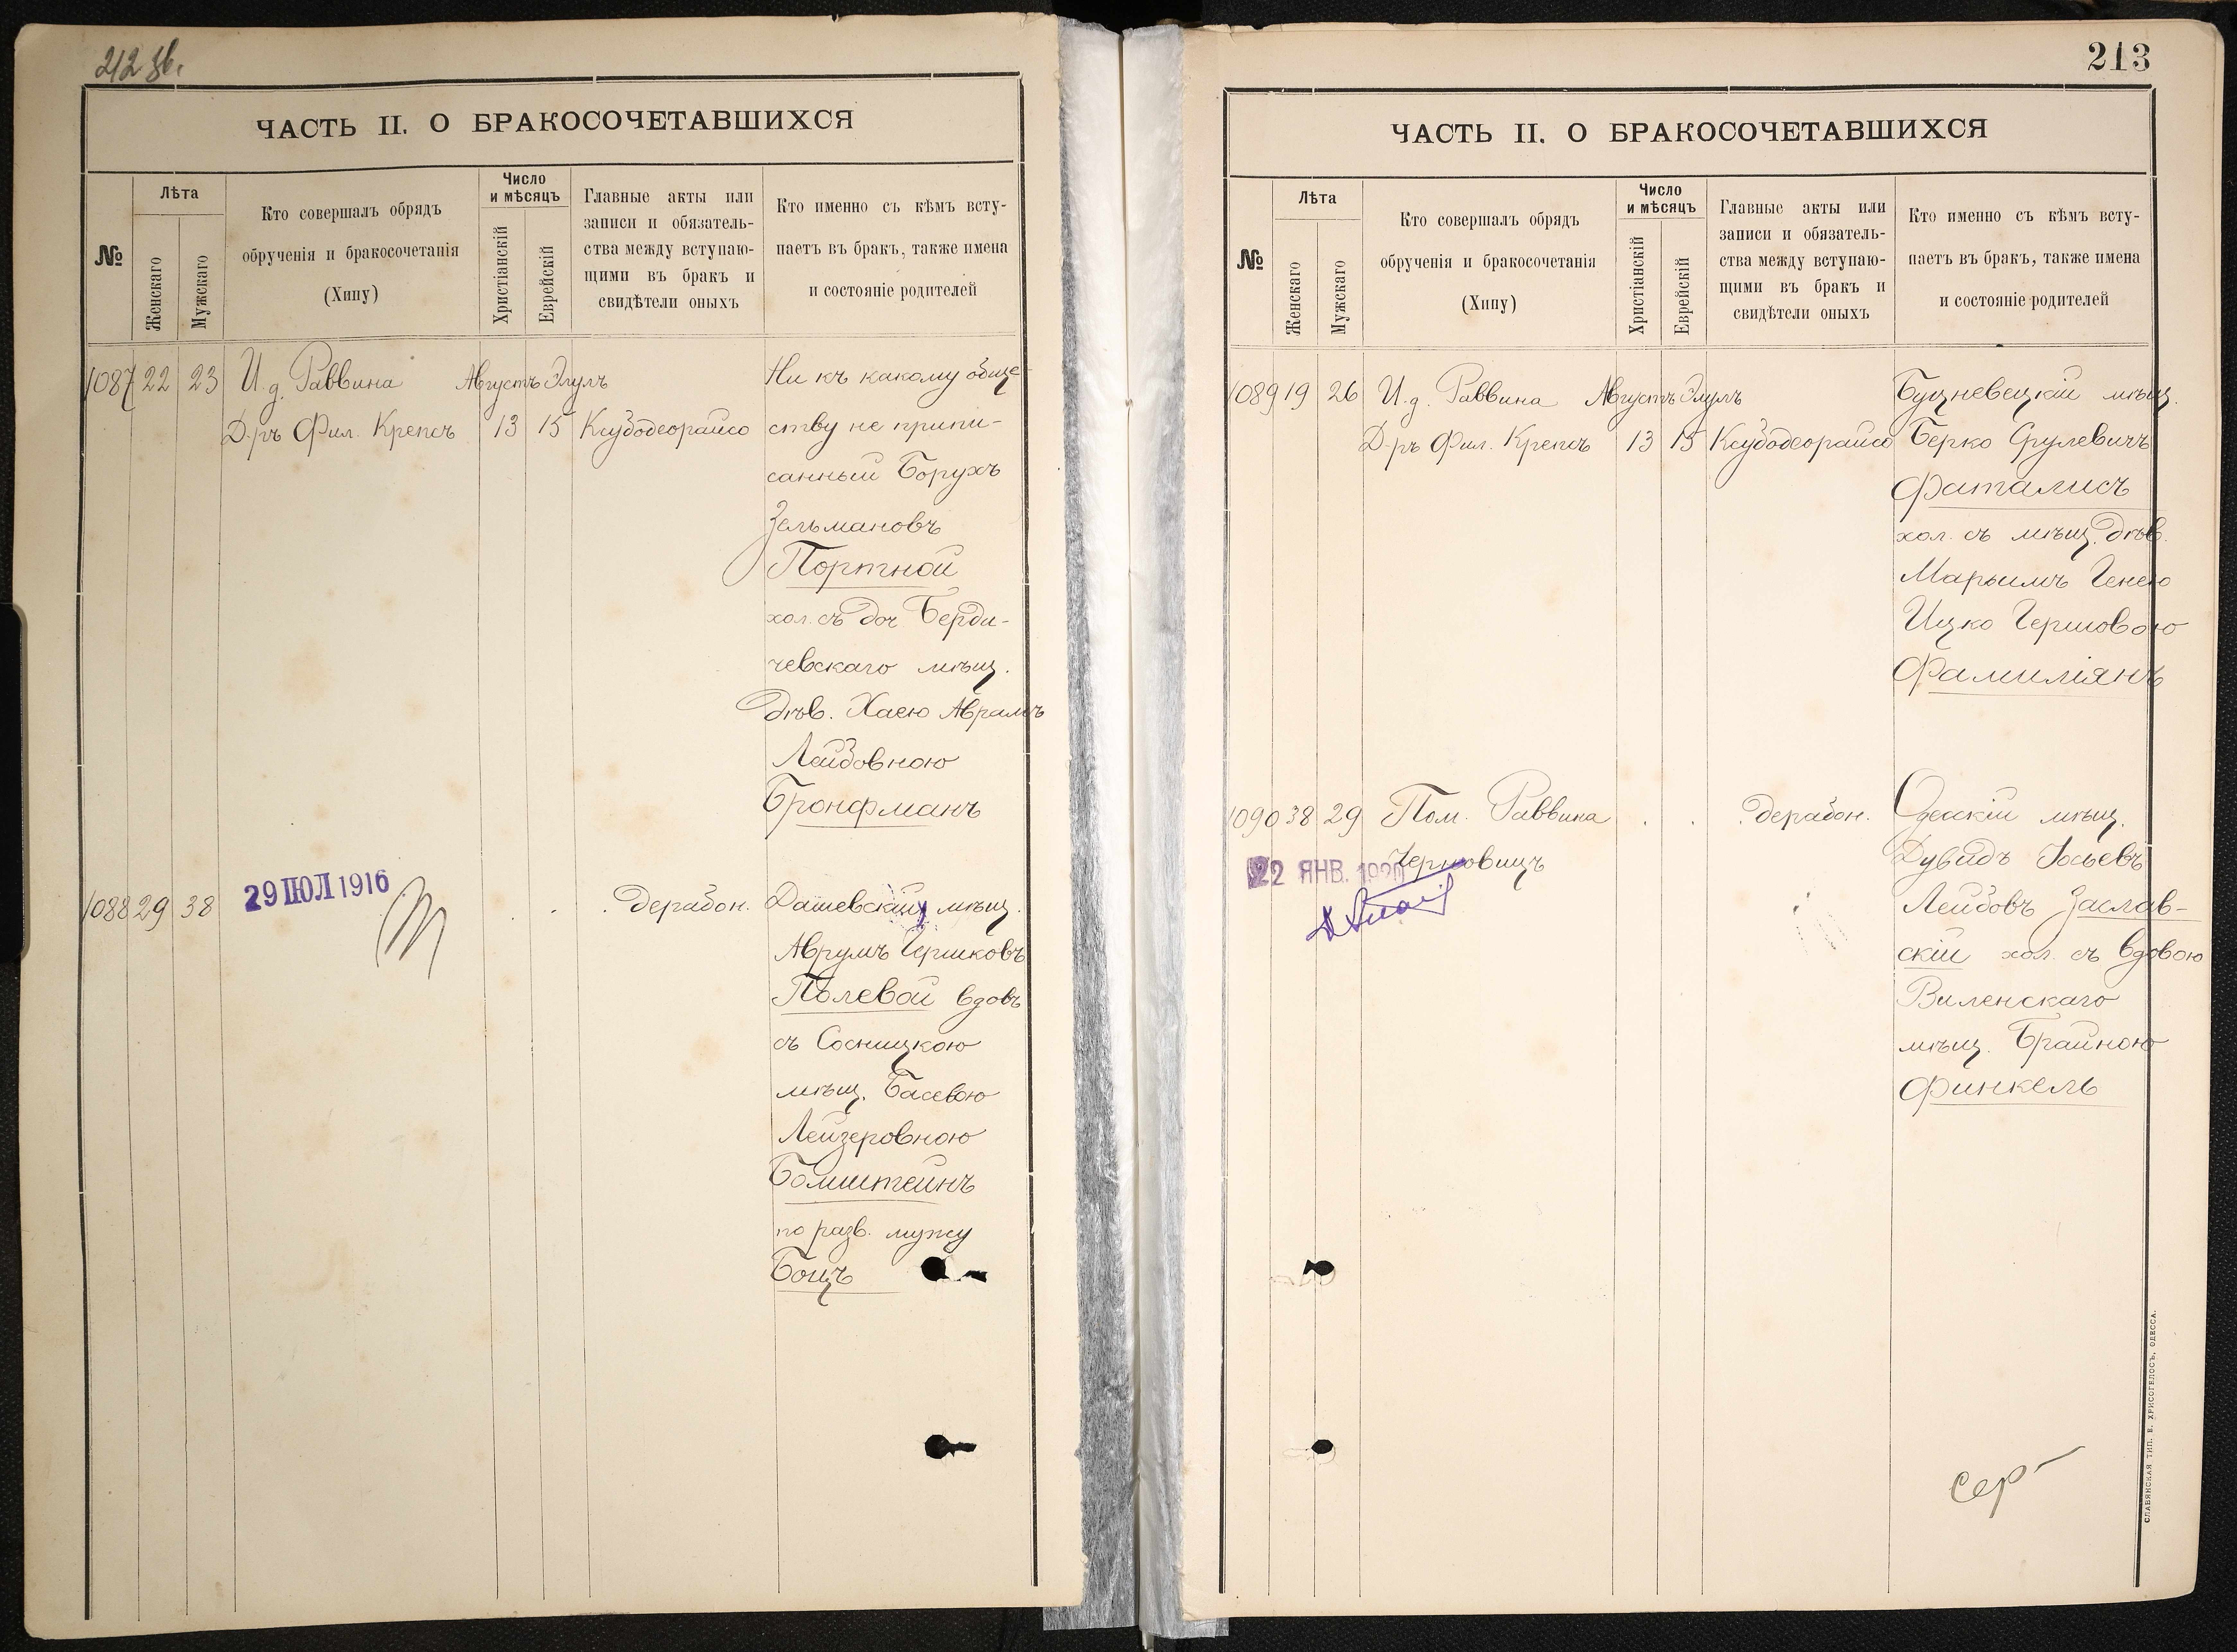 212 зв.
ЧАСТЬ II. О БРАКОСОЧЕТАВШИХСЯ
№
Лѣта
Женскаго
Мужскаго
Кто совершалъ обрядъ
обрученія и бракосочетанія
(Хипу)
Число
и мѣсяцъ
Христіанскій
Еврейскій
Главные акты или
записи и обязатель-
ства между вступаю-
щими въ бракъ и
свидѣтели оныхъ
Кто именно съ кѣмъ всту-
паетъ въ бракъ, также имена
и состояніе родителей
1087 22 23 И.д. Раввина Августъ Элулъ
Д-ръ Фил. Крепсъ 13 15 Ксубодеорайсо
Ни къ какому обще-
ству не припи-
санный Борухъ
Зельмановъ
Портной
хол. съ доч. Верди-
чевскаго мѣщ.
дѣв. Хаею Аврамъ
Лейбовною
Бронфманъ
1088 29 38 29 ІЮЛ 1916 . . . дерабон.
Дашевскій мѣщ.
Аврумъ Гершковъ
Полевой вдовъ
съ Сосницкою
мѣщ. Басевою
Лейзеровною
Бомштейнъ
по разв. мужу
Боцъ
213
ЧАСТЬ II. О БРАКОСОЧЕТАВШИХСЯ
№
Лѣта
Женскаго
Мужскаго
Кто совершалъ обрядъ
обрученія и бракосочетанія
(Хипу)
Число
и мѣсяцъ
Христіанскій
Еврейскій
Главные акты или
записи и обязатель-
ства между вступаю-
щими въ бракъ и
свидѣтели оныхъ
Кто именно съ кѣмъ всту-
паетъ въ бракъ, также имена
и состояніе родителей
1089 19 26 И.д. Раввина Августъ Элулъ
Д-ръ Фил. Крепсъ 13 15 Ксубодеорайсо
Буцневецкій мѣщ.
Берко Срулевичъ
Фаталисъ
хол. съ мѣщ. дѣв.
Марьимъ Генею
Ицко Гершовою
Фамиліянъ
1090 38 29 Пом. Раввина . . . дерабон.
Черновицъ
22 ЯНВ. 1920
Одескій мѣщ.
Дувидъ Іосьевъ
Лейбовъ Заслав-
скій хол. съ вдовою
Виленскаго
мѣщ. Брайною
Финкель
сер-
СЛАВЯНСКАЯ ТИП. Е. ХРИСОГЕЛОСЪ, ОДЕССА.